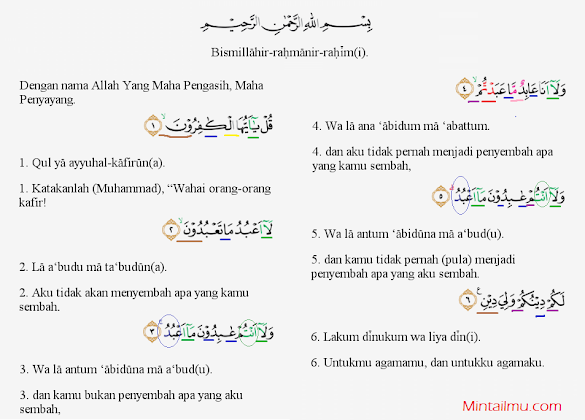 بِسْمِ اللهِ الرَّحْمٰنِ الرَّحِيْمِ
Bismillāhir-raḥmānir-raḥīm(i).
Dengan nama Allah Yang Maha Pengasih, Maha
Penyayang.
قُلْ يٰٓاَيُّهَا الْكٰفِرُوْنَۙ ١
1. Qul yā ayyuhal-kāfirūn(a).
1. Katakanlah (Muhammad), “Wahai orang-orang
kafir!
لَآ اَعْبُدُ مَا تَعْبُدُوْنَۙ ٢
2. Lā a‘budu mā ta‘budūn(a).
2. Aku tidak akan menyembah apa yang kamu
sembah.
وَلَآ اَنْتُمْ عٰبِدُوْنَ مَآ اَعْبُدُۚ ٣
3. Wa lā antum ‘ābidūna mā a‘bud(u).
3. dan kamu bukan penyembah apa yang aku
sembah,
وَلَآ اَنَا۠ عَابِدٌ مَّا عَبَدْتُّمْۙ ٤
4. Wa lā ana ‘ābidum mā ‘abattum.
4. dan aku tidak pernah menjadi penyembah apa
yang kamu sembah,
وَلَآ اَنْتُمْ عٰبِدُوْنَ مَآ اَعْبُدُۗ ٥
5. Wa lā antum ‘ābidūna mā a‘bud(u).
5. dan kamu tidak pernah (pula) menjadi
penyembah apa yang aku sembah.
لَكُمْ دِيْنُكُمْ وَلِيَ دِيْنِࣖ ٦
6. Lakum dīnukum wa liya dīn(i).
6. Untukmu agamamu, dan untukku agamaku.
Mintailmu.com